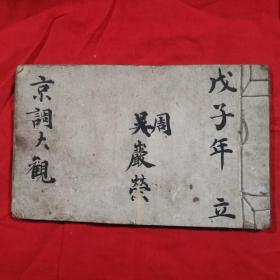 戊子年 立
周
吳巖榮
京調大觀